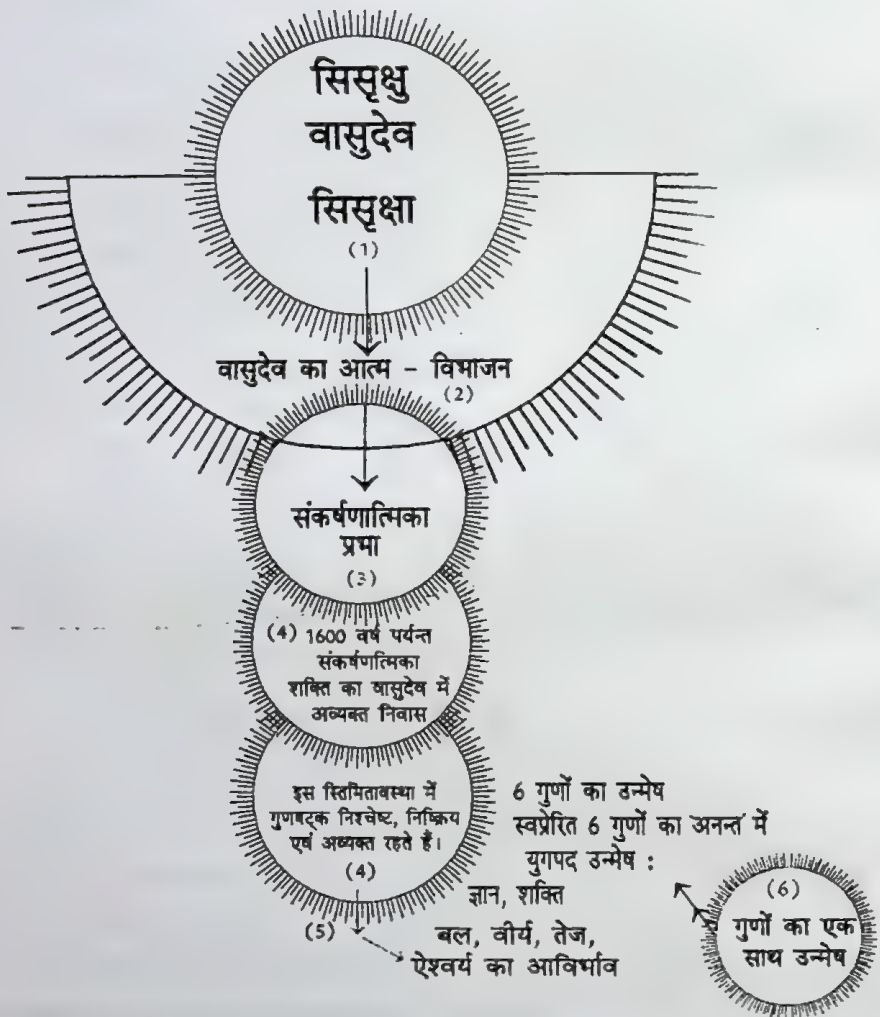 सिसृक्षु
वासुदेव
सिसृक्षा
(1)
वासुदेव का आत्म - विभाजन
(2)
संकर्षणात्मिका
प्रभा
(3)
(4) 1600 वर्ष पर्यन्त
संकर्षणत्मिका
शक्ति का वासुदेव में
अव्यक्त निवास
इस स्तिमितावस्था में
गुणषट्क निश्चेष्ट, निष्क्रिय
एवं अव्यक्त रहते हैं।
(4)
(5)
6 गुणों का उन्मेष
स्वप्रेरित 6 गुणों का अनन्त में
युगपद उन्मेष :
ज्ञान, शक्ति
बल, वीर्य, तेज,
ऐश्वर्य का आविर्भाव
(6)
गुणों का एक
साथ उन्मेष